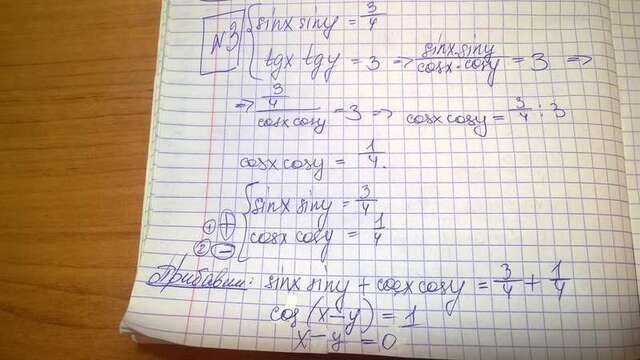 №3 { sinx siny = 3/4
tgx tgy = 3 => sinx siny / cosx · cosy = 3 =>
=> 3/4 / cosx cosy = 3 => cosx cosy = 3/4 : 3
cosx cosy = 1/4.
{ sinx siny = 3/4
① + ② − cosx cosy = 1/4
Прибавим: sinx siny + cosx cosy = 3/4 + 1/4
cos(x−y) = 1
x−y = 0